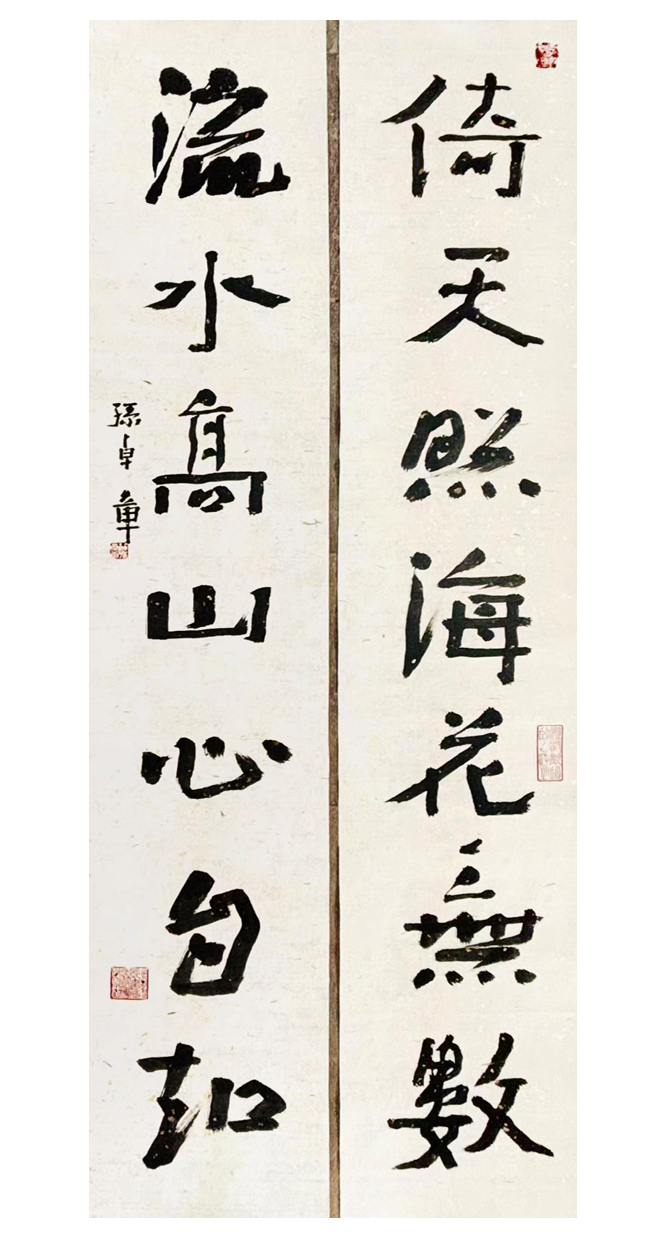 倚天照海花無數
流水高山心自知
孫卓章